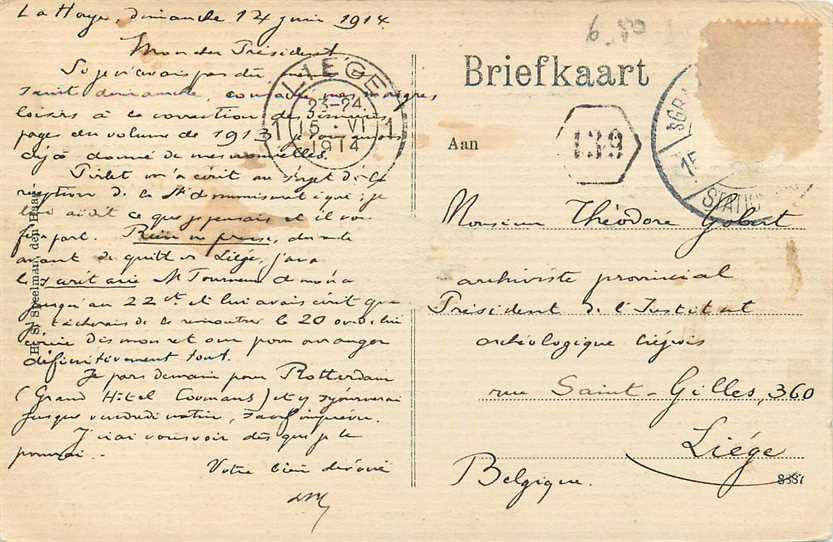 La Haye, dimanche 14 juin 1914
Mon cher Président
Si je n'avais pas dû,
saint dimanche, consacrer mes maigres
loisirs à la correction des dernières
pages du volume de 1913 je vous aurais
déjà donné de mes nouvelles.
Pirlet m'a écrit au sujet de la
de la
lui ai dit ce que je pensais et il vous
fera part. Rien ne presse, du reste
avant de quitter Liège, j'avais
le secrétaire Mr Tourneur
jusqu'au 22 et lui avais écrit que
je tâcherais de le rencontrer le 20 ou de lui
écrire dès mon retour pour arranger
définitivement tout.
Je pars demain pour Rotterdam
(Grand Hôtel Coomans) et y séjournerai
jusque vendredi matin, sauf imprévu.
J'irai vous voir dès que je le
pourrai.
Votre bien dévoué
LIÈGE
23-24
1 15 VI 1
1914
Briefkaart
6.80
Aan
139
15
STATION
Monsieur Théodore Gobert
archiviste provincial
Président de l'Institut
archéologique liégeois
rue Saint-Gilles, 360
Liége
Belgique.
8387
H. S. Speelman, den Haag.